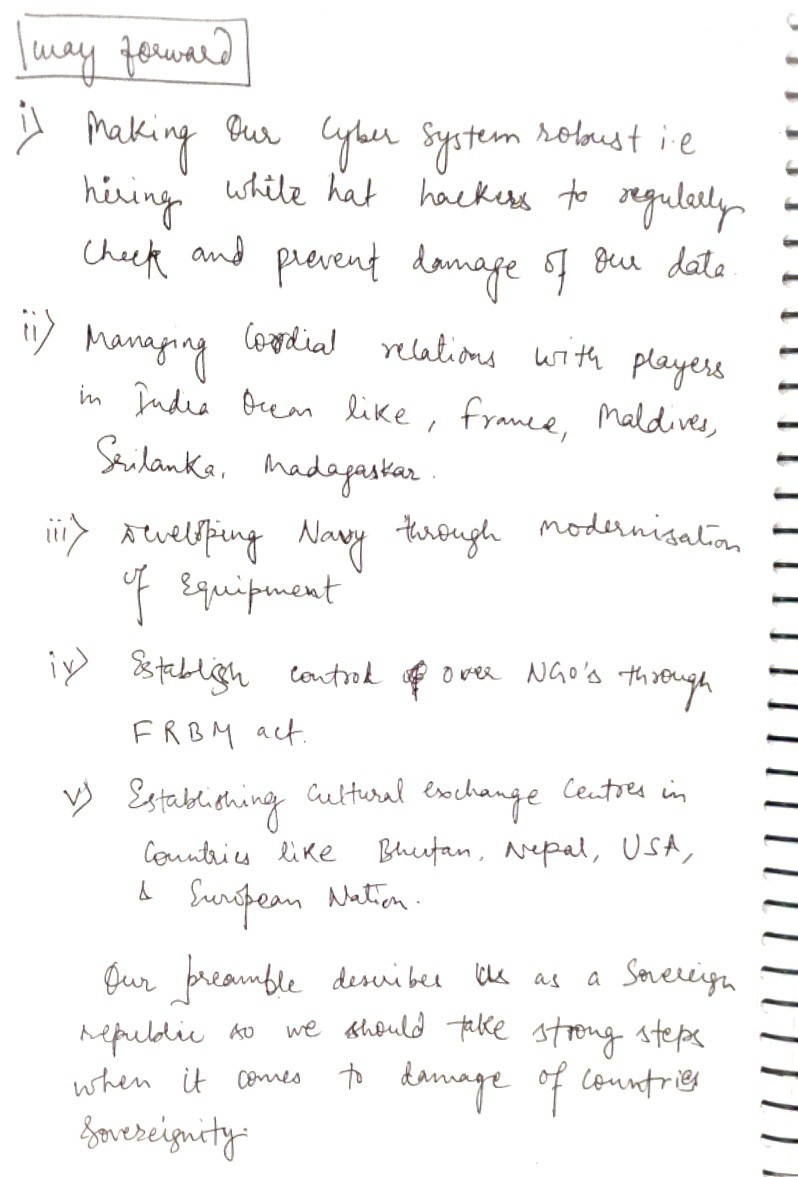 way forward
i) Making Our Cyber System robust i.e
hiring white hat hackers to regularly
Check and prevent damage of our data.
ii) Managing Cordial relations with players
in India Ocean like, France, Maldives,
Srilanka, Madagaskar.
iii) Developing Navy through modernisation
of Equipment
iv) Establish control over NGO's through
FRBM act.
v) Establishing Cultural exchange Centres in
Countries like Bhutan, Nepal, USA,
& European Nation.
Our preamble describes us as a Sovereign
republic so we should take strong steps
when it comes to damage of countries
Sovereignity.